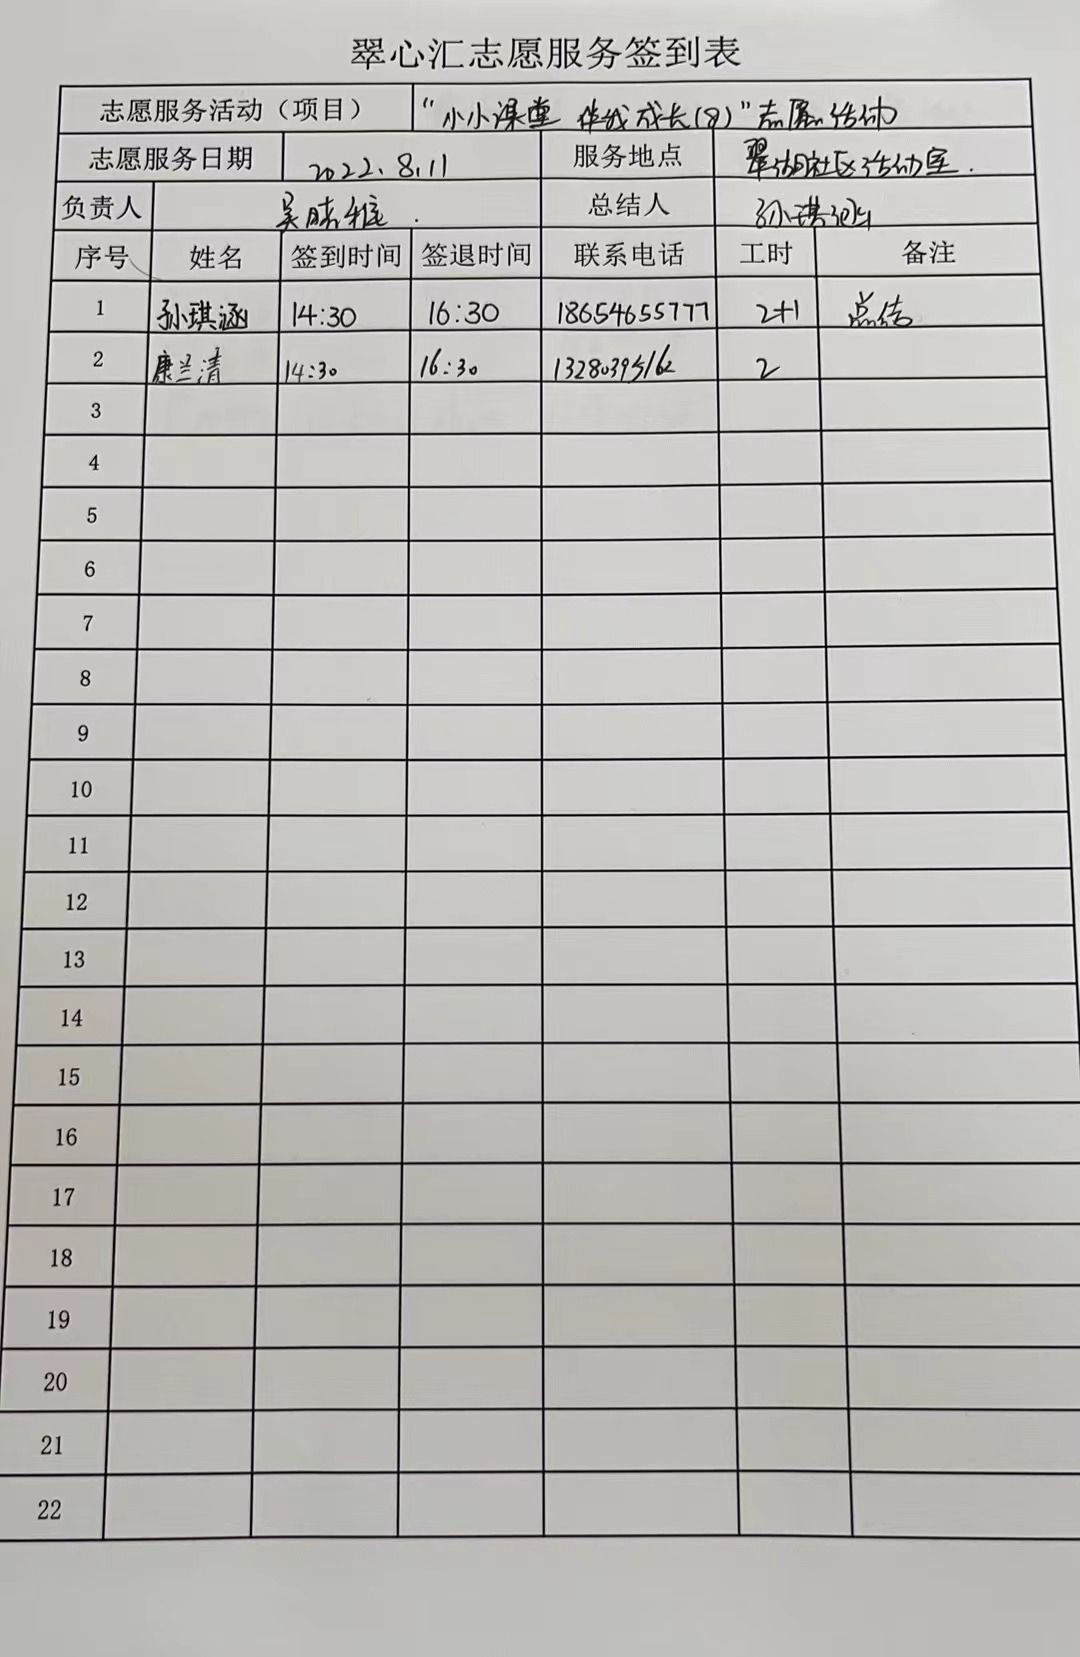 翠心汇志愿服务签到表
志愿服务活动（项目） “小小课堂 伴我成长(8)”志愿活动
志愿服务日期 2022.8.11 服务地点 翠湖社区活动室.
负责人 吴 雅. 总结人 孙琪涵
序号 姓名 签到时间 签退时间 联系电话 工时 备注
1 孙琪涵 14:30 16:30 18654655777 2+1 总结
2 康兰清 14:30 16:30 2
3
4
5
6
7
8
9
10
11
12
13
14
15
16
17
18
19
20
21
22